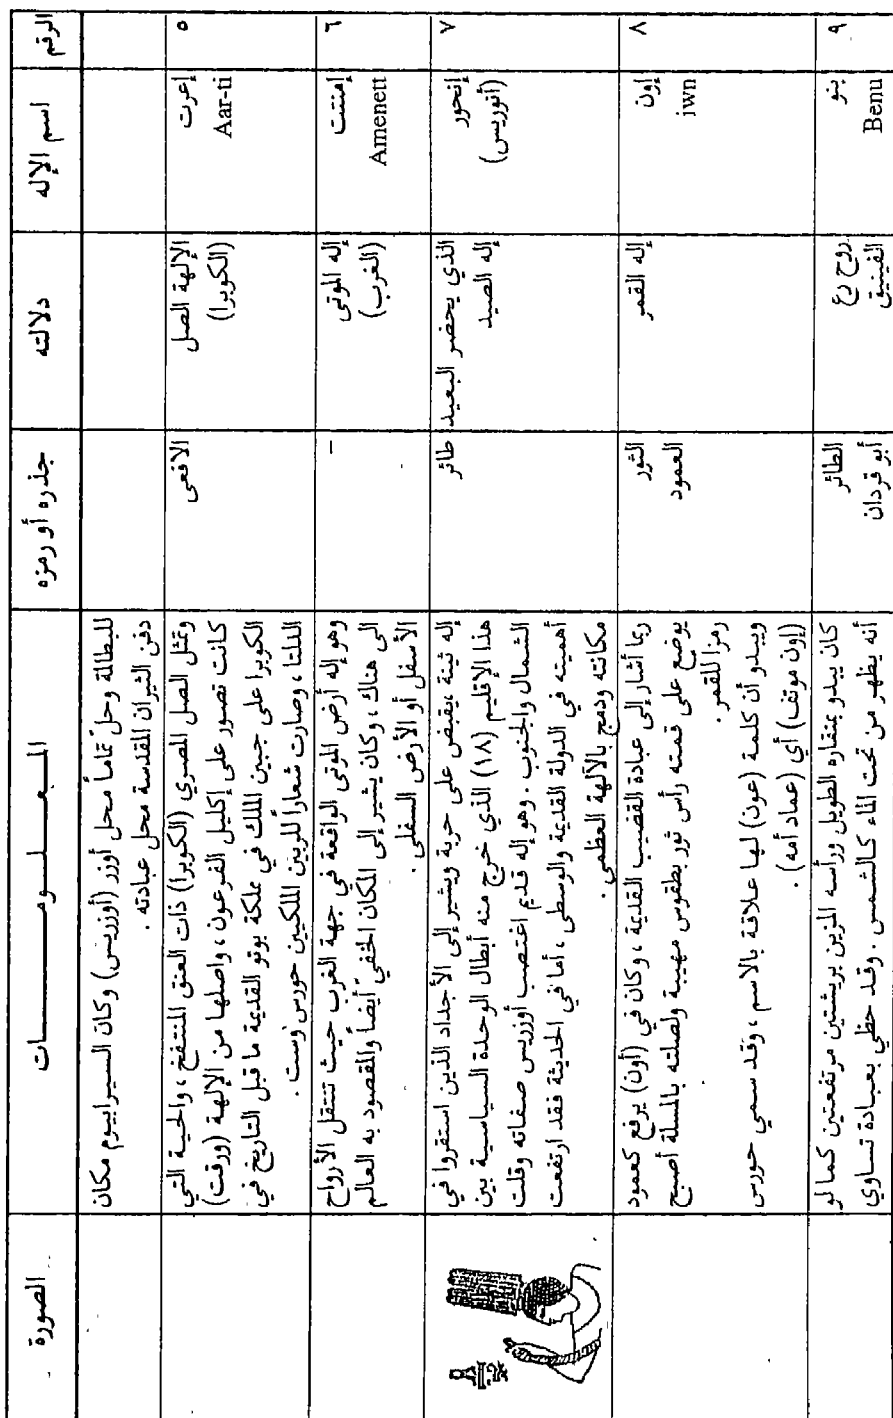 الرقم
اسم الإله
دلالته
جذره أو رمزه
المعلومات
الصورة
للبطالة وحلّ تماماً محل أوزر (أوزريس) وكان السيرابيوم مكان
دفن الثيران المقدسة محل عبادته .
٥
إعرت
Aar-ti
الإلهة الصل
(الكوبرا)
الافعى
وتمثل الصل المصري (الكوبرا) ذات العنق المنتفخ ، والحية التي
كانت تصور على إكليل الفرعون ، واصلها من الإلهة (ورقت)
الكوبرا على جبين الملك في مملكة بوتو القديمة ما قبل التاريخ في
الدلتا ، وصارت شعاراً للربين الملكيين حورس وست .
٦
إمنتت
Amenett
إله الموتى
(الغرب)
-
وهو إله أرض الموتى الواقعة في جهة الغرب حيث تنتقل الأرواح
الى هناك ، وكان يشير إلى المكان الخفيّ أيضاً والمقصود به العالم
الأسفل أو الأرض السفلى .
٧
إنحور
(أنوريس)
الذي يحضر البعيد
إله الصيد
طائر
إله ثينة ،يقبض على حربة ويشير إلى الأجداد الذين استقروا في
هذا الإقليم (١٨) الذي خرج منه أبطال الوحدة السياسية بين
الشمال والجنوب . وهو إله قديم اغتصب أوزريس صفاته وقلت
أهميته في الدولة القديمة والوسطى ، أما في الحديثة فقد ارتفعت
مكانته ودمج بالآلهة العظمى .
٨
إون
iwn
إله القمر
الثور
العمود
ربما أشار إلى عبادة القضيب القديمة ، وكان في (أون) يرفع كعمود
يوضع على قمته رأس ثور بطقوس مهيبة ولصلته بالمسلة أصبح
رمزا للقمر .
ويبدو أن كلمة (عون) لها علاقة بالاسم ، وقد سمي حورس
(إون موتف) أي (عماد أمه) .
٩
بنو
Benu
روح رع
الفينيق
الطائر
أبو قردان
كان يبدو بمنقاره الطويل ورأسه المزين بريشتين مرتفعتين كما لو
أنه يظهر من تحت الماء كالشمس . وقد حظي بعبادة تساوي